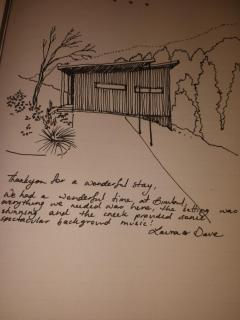 Thankyou for a wonderful stay,
We had a wonderful time at
everything we needed was here, the setting was
stunning and the creek provided some
spectacular background music!
Laura & Dave